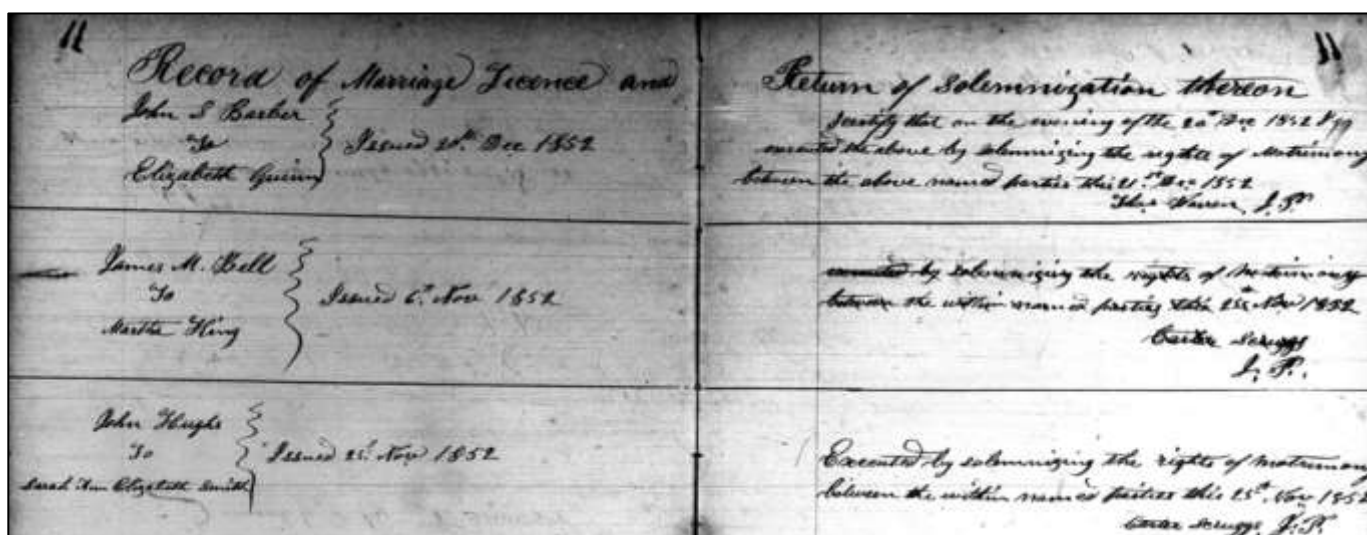 11
Record of Marriage Licence and
John S Barber
To
Elizabeth Guinn
Issued 20th Dec 1852
James M. Bell
To
Martha King
Issued 6th Nov 1852
John Hughs
To
Sarah Ann Elizabeth Smith
Issued 25th Nov 1852
11
Return of Solemnization thereon
I certify that on the evening of the 20th Dec 1852 I
executed the above by solemnizing the rights of Matrimony
between the above named parties this 21st Dec 1852
Warren J.P.
executed by solemnizing the rights of Matrimony
between the within named parties this 25th Nov 1852
Carter Scruggs
J. P.
Executed by solemnizing the rights of Matrimony
between the within named parties this 25th Nov 1852
Carter Scruggs J. P.